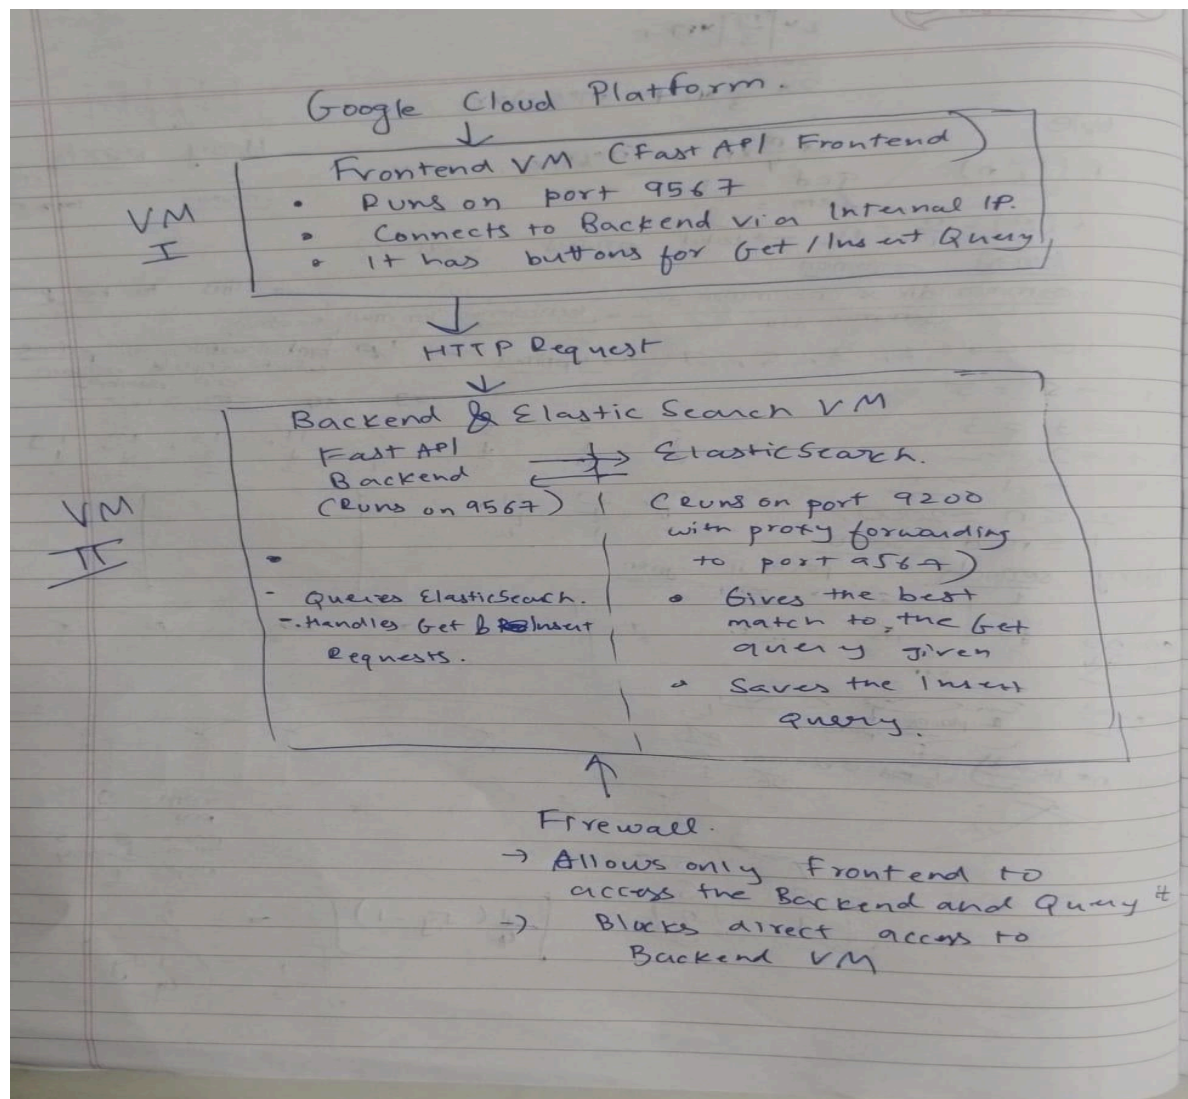 Google Cloud Platform.
Frontend VM (Fast API Frontend)
VM
I
• Runs on port 9567
• Connects to Backend via Internal IP.
• It has buttons for Get / Insert Query
HTTP Request
Backend & Elastic Search VM
VM
II
Fast API
Backend
(Runs on 9567)
- Queries ElasticSearch.
- Handles Get & Insert
Requests.
ElasticSearch.
(Runs on port 9200
with proxy forwarding
to port 9567)
• Gives the best
match to, the Get
query given
• Saves the insert
query.
Firewall.
→ Allows only Frontend to
access the Backend and Query it
→ Blocks direct access to
Backend VM